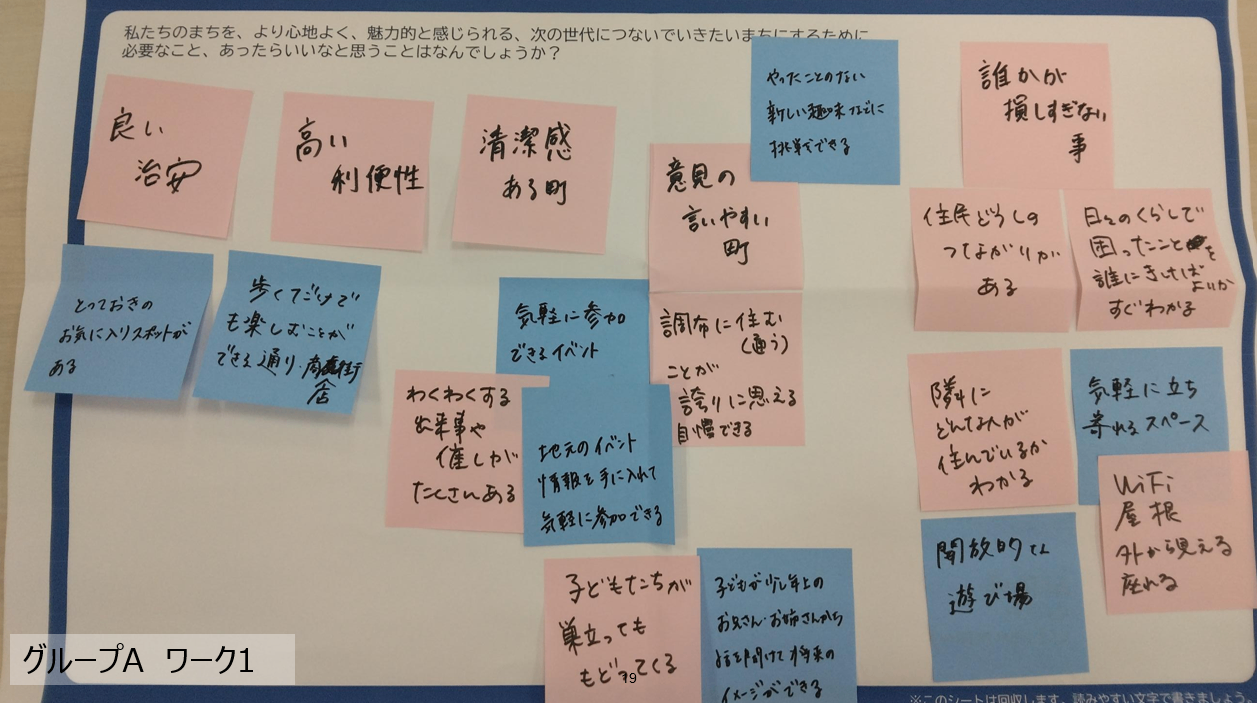 私たちのまちを、より心地よく、魅力的と感じられる、次の世代につないでいきたいまちにするために
必要なこと、あったらいいなと思うことはなんでしょうか？
良い
治安
高い
利便性
清潔感
ある町
意見の
言いやすい
町
やったことのない
新しい趣味などに
挑戦できる
誰かが
損しすぎない
事
住民どうしの
つながりが
ある
日々のくらしで
困ったことを
誰にきけばよいか
すぐわかる
とっておきの
お気に入りスポットが
ある
歩くだけで
も楽しむことが
できる通り・商店街
気軽に参加
できるイベント
調布に住む
(通う)
ことが
誇りに思える
自慢できる
わくわくする
出来事や
催しが
たくさんある
地元のイベント
情報を手に入れて
気軽に参加できる
隣に
どんな人が
住んでいるか
わかる
気軽に立ち
寄れるスペース
WiFi
屋根
外から見える
座れる
開放的な
遊び場
子どもたちが
巣立っても
もどってくる
子どもが少し年上の
お兄さん・お姉さんから
話を聞けて将来の
イメージができる
グループA ワーク1
19
※このシートは回収します。読みやすい文字で書きましょう。